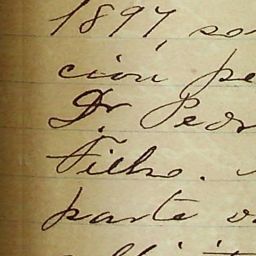 1897, so
ciou pe
Dr Pedr
Filho.
parte